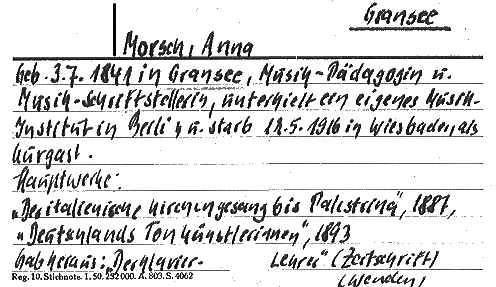 Gransee
Morsch, Anna
Geb. 3.7.1841 in Gransee, Musik-Pädagogin u.
Musik-Schriftstellerin, unterhielt ein eigenes Musik-
Institut in Berlin u. starb 12.5.1916 in Wiesbaden, als
Kurgast.
Hauptwerke:
„Der italienische Kirchengesang bis Palestrina", 1887,
„Deutschlands Tonkünstlerinnen", 1893
Gab heraus: „Der Klavier-Lehrer" (Zeitschrift)
Reg. 10. Stichnote. I. 50. 252000. A. 803. S. 4062
(wenden)